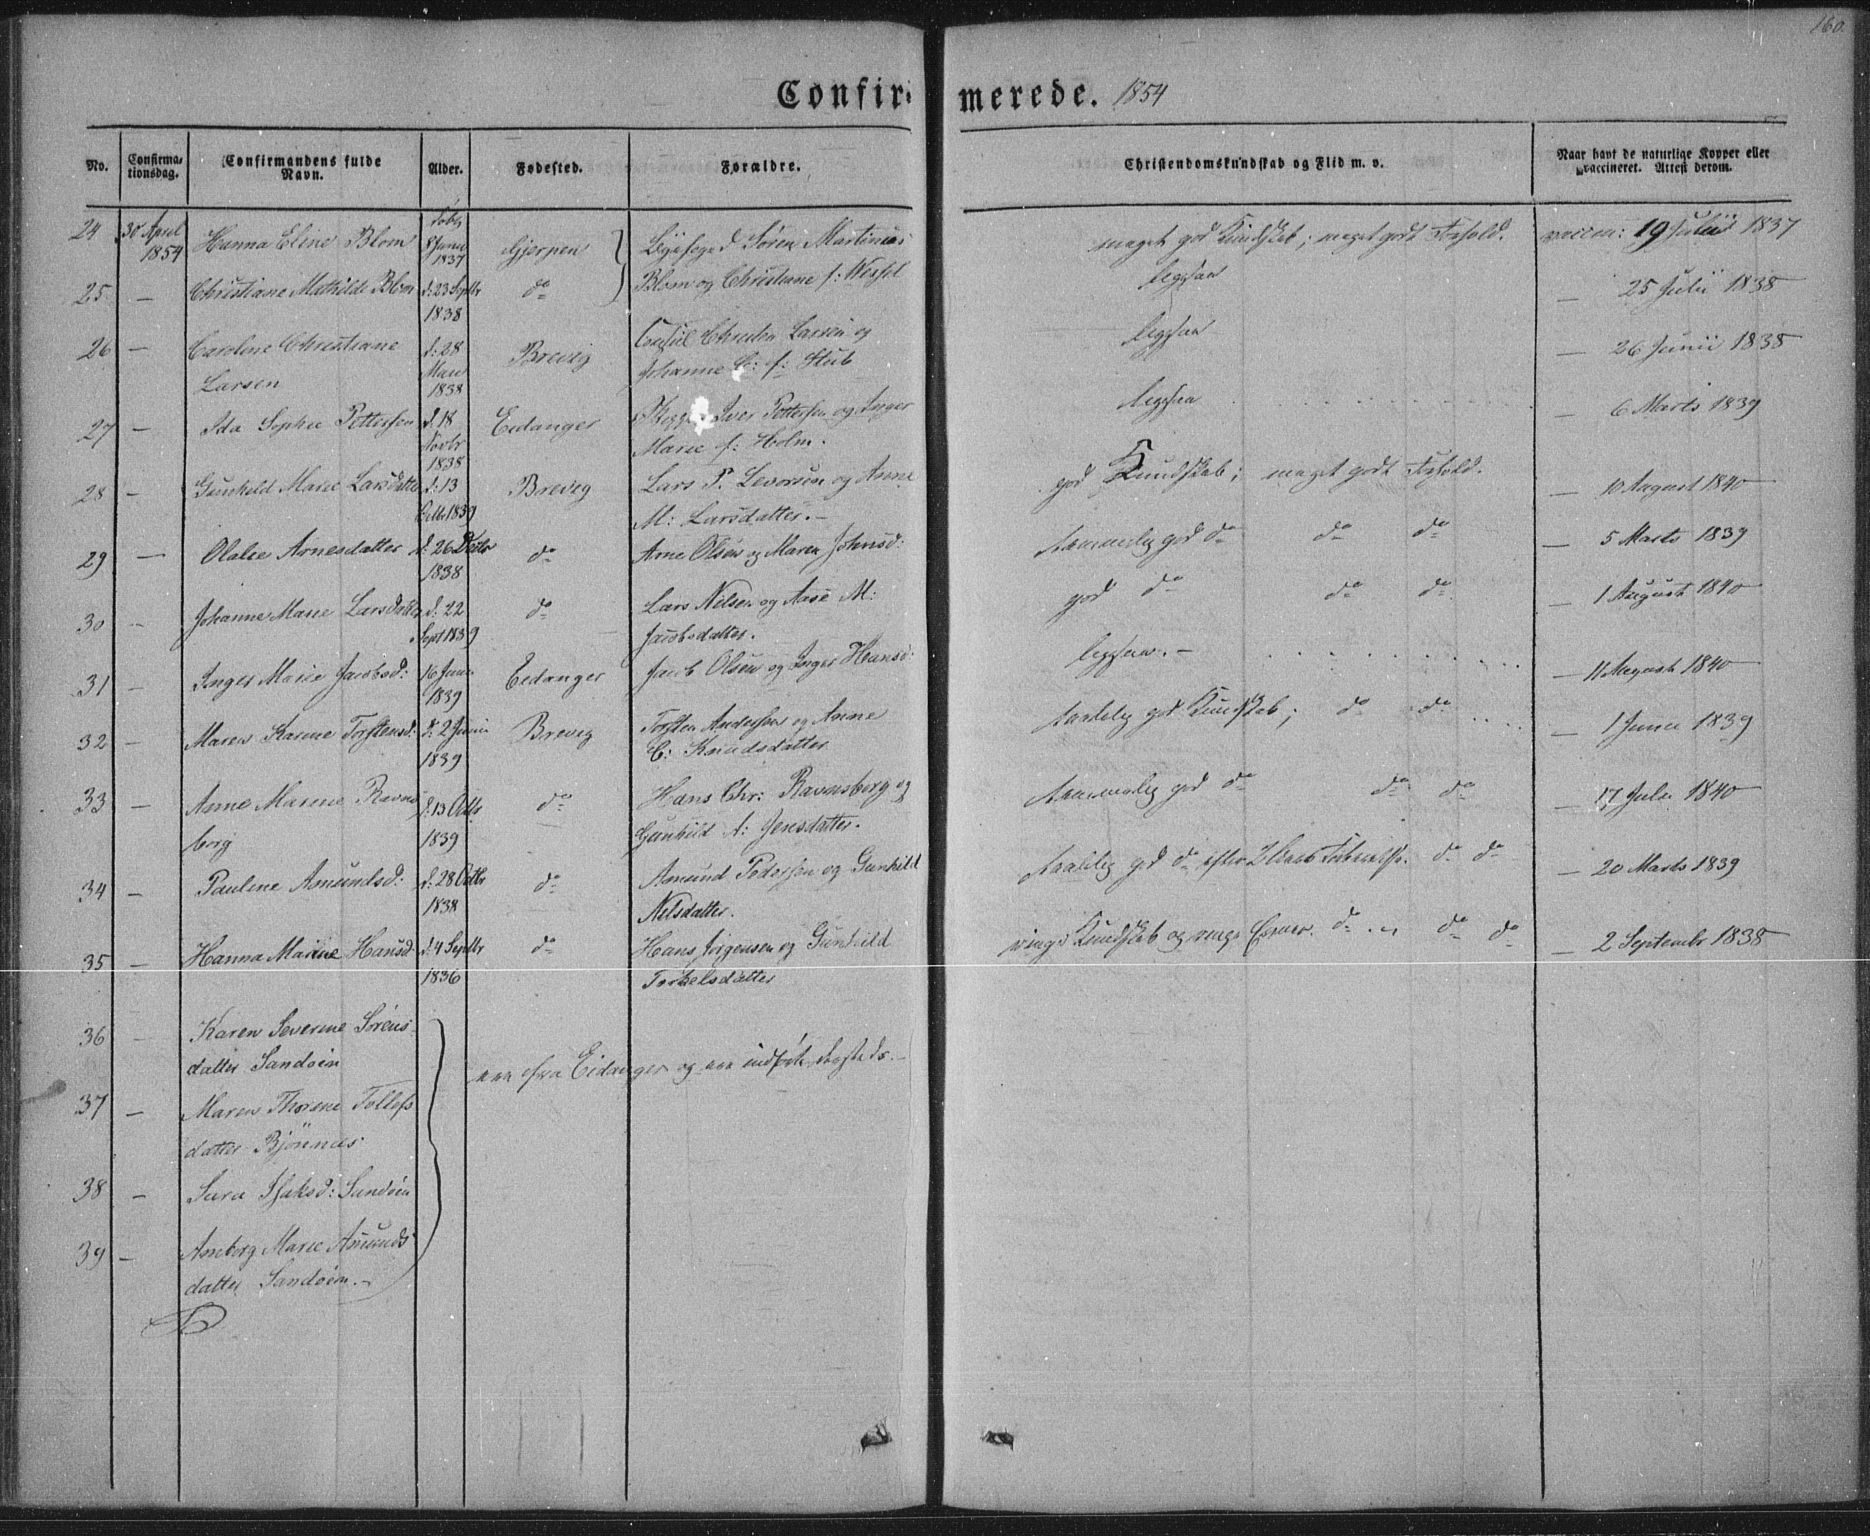 160.
Confirmerede. 1854
No.
Confirma-
tionsdag.
Confirmandens fulde
Navn.
Alder.
Fødested.
Forældre.
Christendomskundskab og Flid m. v.
Naar havt de naturlige Kopper eller
vaccineret. Attest derom.
24 30 April 1854 Hanna Eline Blom født 8 Junii 1837 Gjerpen Byefoged Søren Martinius meget god Kundskab; meget godt Forhold. vaccin: 19 Julii 1837
25 — Christiane Mathilde Blom d: 23 Septbr 1838 do Blom og Christiane f: Wesfel ligesaa — 25 Julii 1838
26 — Caroline Christiane d: 28 Brevig Consul Christen Larsen og ligesaa — 26 Junii 1838
Larsen 1838 Johanne C: f: Stub
27 — Ida Sophie Pettersen d. 18 Novbr 1838 Eidanger Iver Pettersen og Inger ligesaa — 6 Marts 1839
Marie f: Holm.
28 — Gunhild Marie Larsdatter d: 13 Octbr 1839 Brevig Lars P. Levorsen og Anne god Kundskab; meget godt Forhold. — 10 August 1840
M: Larsdatter. —
29 — Olalie Arnesdatter d. 26 Decbr 1838 do Arne Olsen og Maren Johnsd: temmelig god do do do — 5 Marts 1839
30 — Johanne Marie Larsdatter d: 22 Sept 1839 do Lars Nilsen og Aase M: god do do do — 1 August 1840
Jacobsdatter.
31 — Inger Marie Jacobsd: 16 Juni 1839 Eidanger Jacob Olsen og Inger Hansd: ligesaa. — — 11 August 1840
32 — Maren Karine Torstensd: d. 2 Junii 1839 Brevig Torsten Andersen og Anne god Kundskab; do do — 1 Junii 1839
C: Knudsdatter
33 — Anne Marine Ravns d. 13 Octbr do Hans Chr: Ravnsborg og temmelig god do do do — 17 Julii 1840
borg 1839 Gunhild A: Jensdatter.
34 — Pauline Amundsd: d: 28 Octbr 1838 do Amund Pedersen og Gunhild god do efter do do — 20 Marts 1839
Nilsdatter.
35 — Hanna Marine Hansd: d. 4 Septbr 1836 do Hans Jørgensen og Gunhild ringe Kundskab og ringe Evner. do do do — 2 Septembr 1838
Torkelsdatter
36 — Karen Severine Sørens
datter Sandøen
ere fra Eidanger og ere indførte
37 — Maren Thorine Tollefs
datter Bjønnes.
38 — Sara Isaksd: Sandøen
39 — Anneborg Marie Amunds
datter Sandøen. —